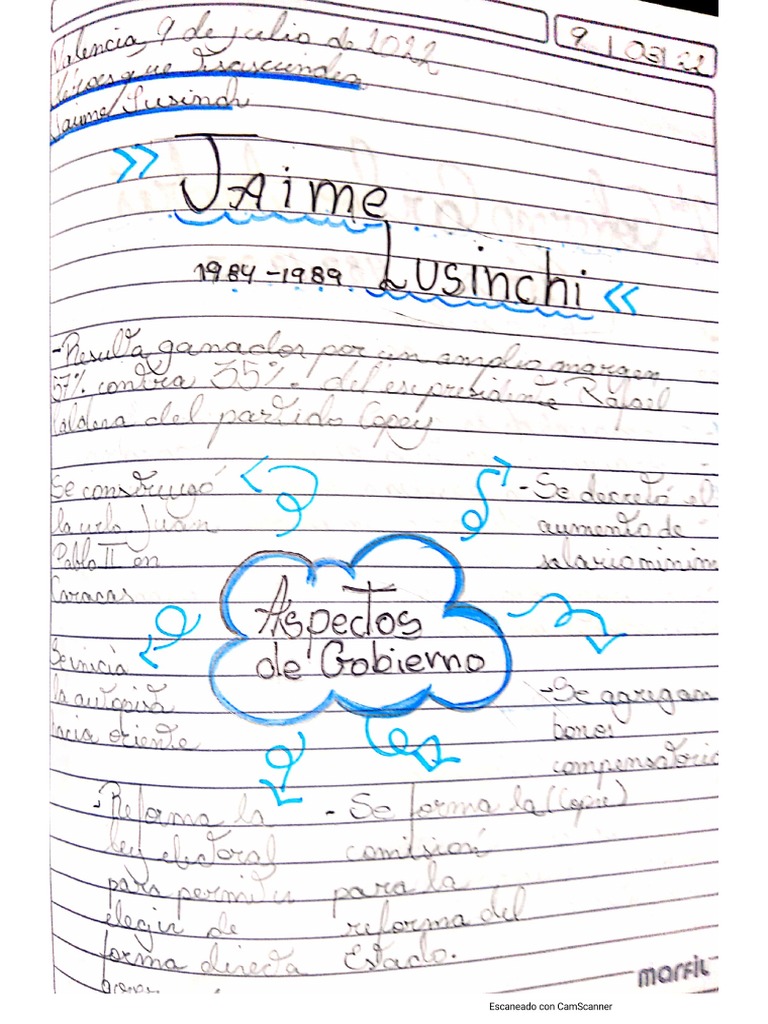 Valencia, 9 de julio de 2022
9 / 03 / 22
Héroes que Trascienden
Jaime Lusinchi
Jaime
1984-1989 Lusinchi
-Resulta ganador por un amplio margen
57% contra 35%. del expresidente Rafael
Caldera del partido Copey
Se construyó
la urb. Juan
Pablo II en
Caracas
-Se decretó el
aumento de
salario minim
Aspectos
de Gobierno
Se inicia
la autopista
hacia oriente
-Se agregan
bonos
compensatorio
-Reforma la
ley electoral
para permitir
elegir de
forma directa
- Se forma la (Copre)
comisión
para la
reforma del
Estado.
marfil
Escaneado con CamScanner